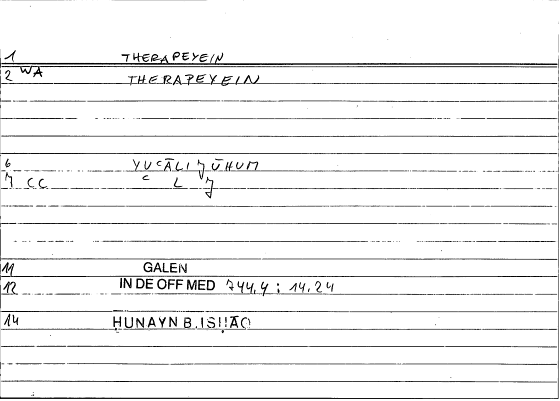 1 THERAPEYEIN
2 WA THERAPEYEIN
6 YUᶜĀLIJŪHUM
7 CC ᶜ L J
11 GALEN
12 IN DE OFF MED 744,4 ; 14.24
14 ḤUNAYN B.ISḤĀQ